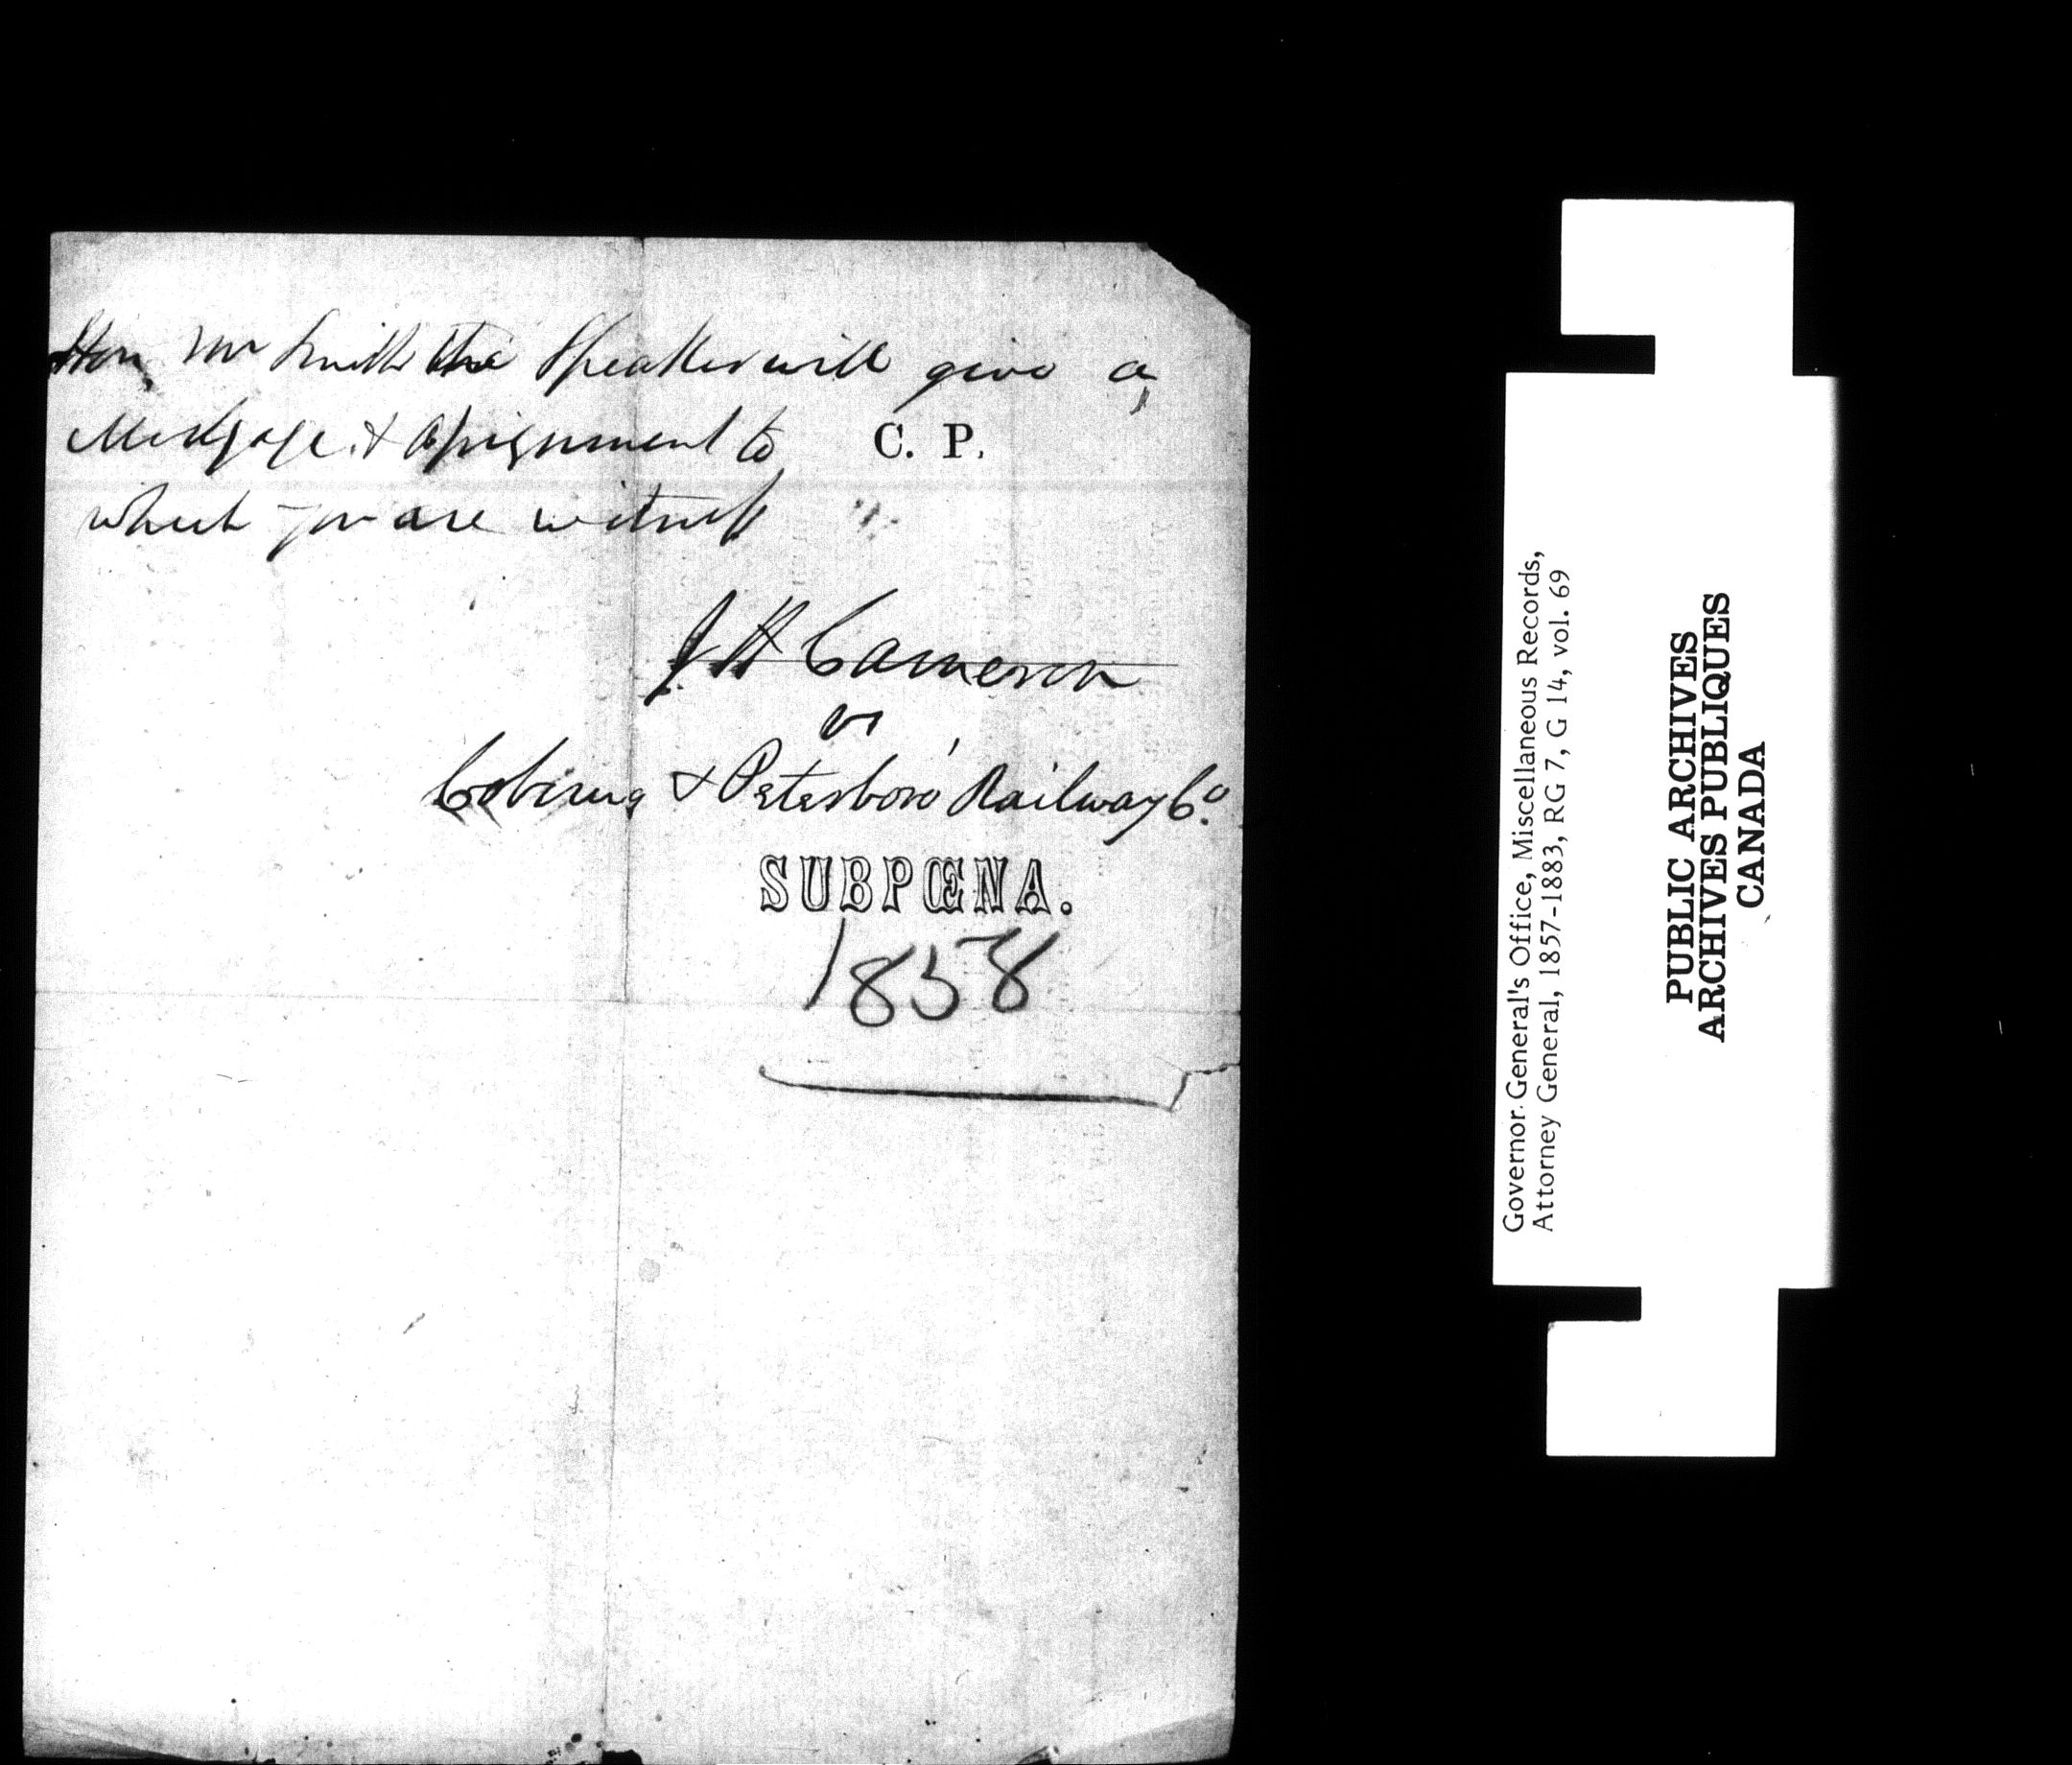 Hon Mr Smith the Speaker will give a
Mortgage & assignment to
C. P.
which you are witness
J H Cameron
vs
Cobourg & Peterboro' Railway Co.
SUBPŒNA.
1858
Governor General's Office, Miscellaneous Records,
Attorney General, 1857-1883, RG 7, G 14, vol. 69
PUBLIC ARCHIVES
ARCHIVES PUBLIQUES
CANADA